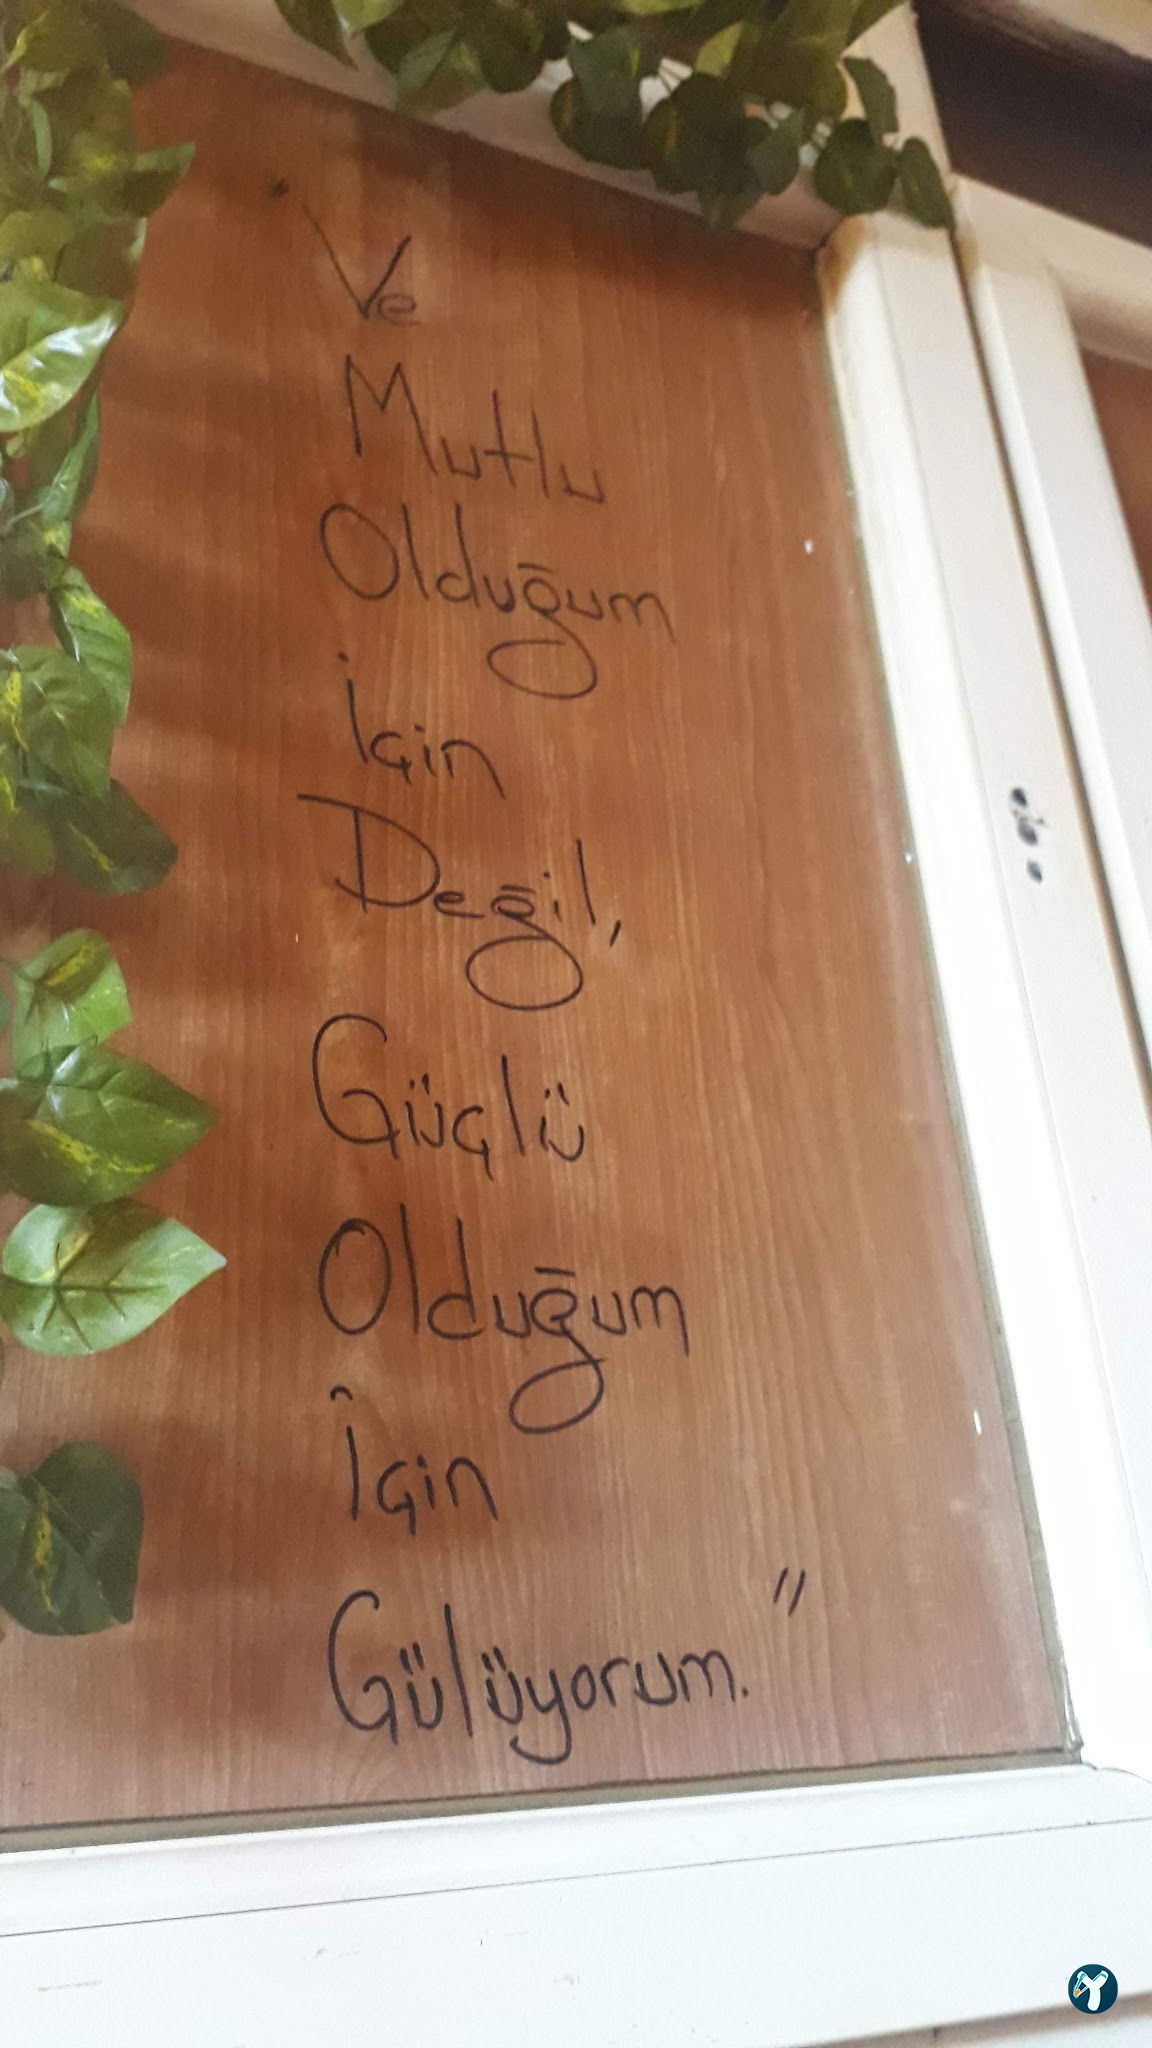 "Ve
Mutlu
Olduğum
İçin
Değil,
Güçlü
Olduğum
İçin
Gülüyorum."